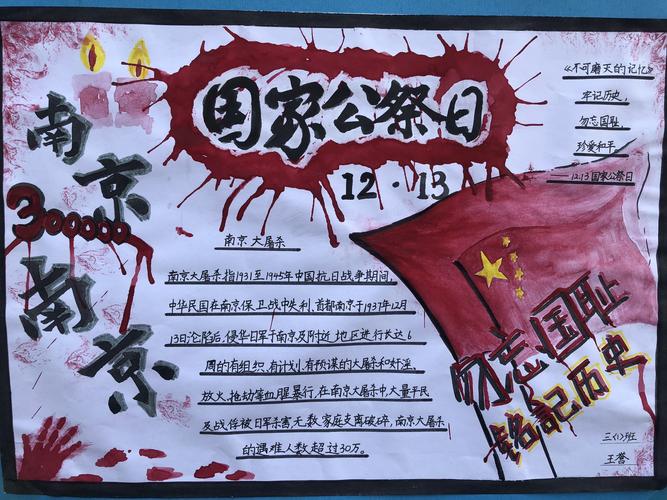 国家公祭日
12·13
南京
300000
南京
《不可磨灭的记忆》
牢记历史,
勿忘国耻
珍爱和平。
——12.13国家公祭日
南京大屠杀
南京大屠杀指1931至1945年中国抗日战争期间,
中华民国在南京保卫战中失利,首都南京于1937年12月
13日沦陷后,侵华日军于南京及附近地区进行长达6
周的有组织、有计划、有预谋的大屠杀和奸淫、
放火、抢劫等血腥暴行,在南京大屠杀中大量平民
及战俘被日军杀害,无数家庭支离破碎,南京大屠杀
的遇难人数超过30万。
勿忘国耻
铭记历史
三(1)班
王誉